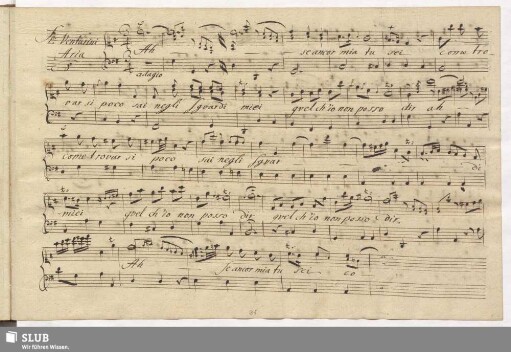 Venturini
Aria
Ah se ancor mia tu sei come tro-
adagio
var si poco sai negli sguardi miei quel ch'io non posso dir ah
come trovar si poco sai negli sguar di
miei quel ch'io non posso dir quel ch'io non posso dir.
Ah se ancor mia tu sei co
SLUB
Wir führen Wissen.